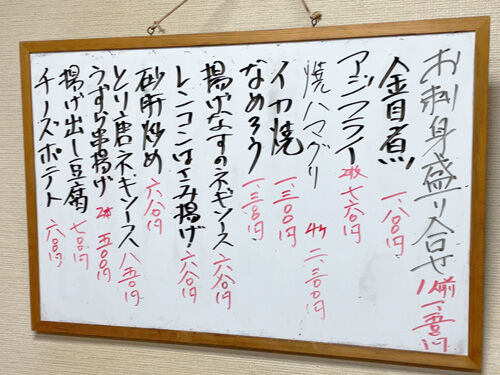 お刺身盛り合せ 1人前 一、五〇〇円
金目煮 一、八〇〇円
アジフライ 2枚 七六〇円
焼ハマグリ 4ケ 二、三〇〇円
イカ焼 一、三〇〇円
なめろう 一、三〇〇円
揚げなすのネギソース 六八〇円
レンコンはさみ揚げ 六八〇円
砂肝炒め 六八〇円
とり唐ネギソース 八五〇円
うずら串揚げ 2本 五〇〇円
揚げ出し豆腐 七〇〇円
チーズポテト 六八〇円